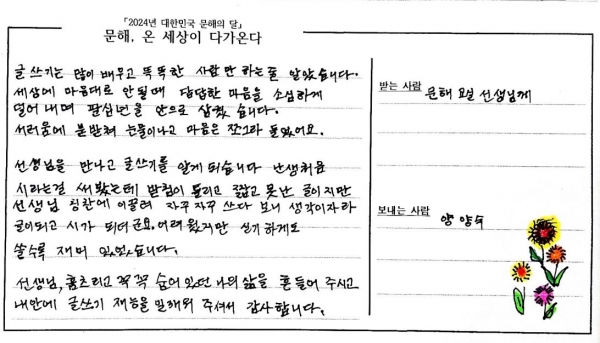 「2024년 대한민국 문해의 달」
문해, 온 세상이 다가온다
글 쓰기는 많이 배우고 똑똑한 사람만 하는줄 알았습니다.
세상에 마음대로 안될때 답답한 마음을 소심하게
덜어내며 팔십년을 안으로 삼켰습니다.
서러움에 북받쳐 눈물이나고 마음은 쪼그라 들었어요.
선생님을 만나고 글쓰기를 알게 되습니다 난생처음
시라는걸 써봤는데 받침이 틀리고 짧고 못난 글이지만
선생님 칭찬에 이끌려 자꾸자꾸 쓰다 보니 생각이자라
글이되고 시가 되더군요. 어려웠지만 신기하게도
쓸수록 재미 있었습니다.
선생님, 움츠리고 꼭꼭 숨어있던 나의 삶을 흔들어 주시고
내안에 글쓰기 재능을 일깨워 주셔서 감사합니다.
받는 사람
문해 선생님께
보내는 사람
양 양수